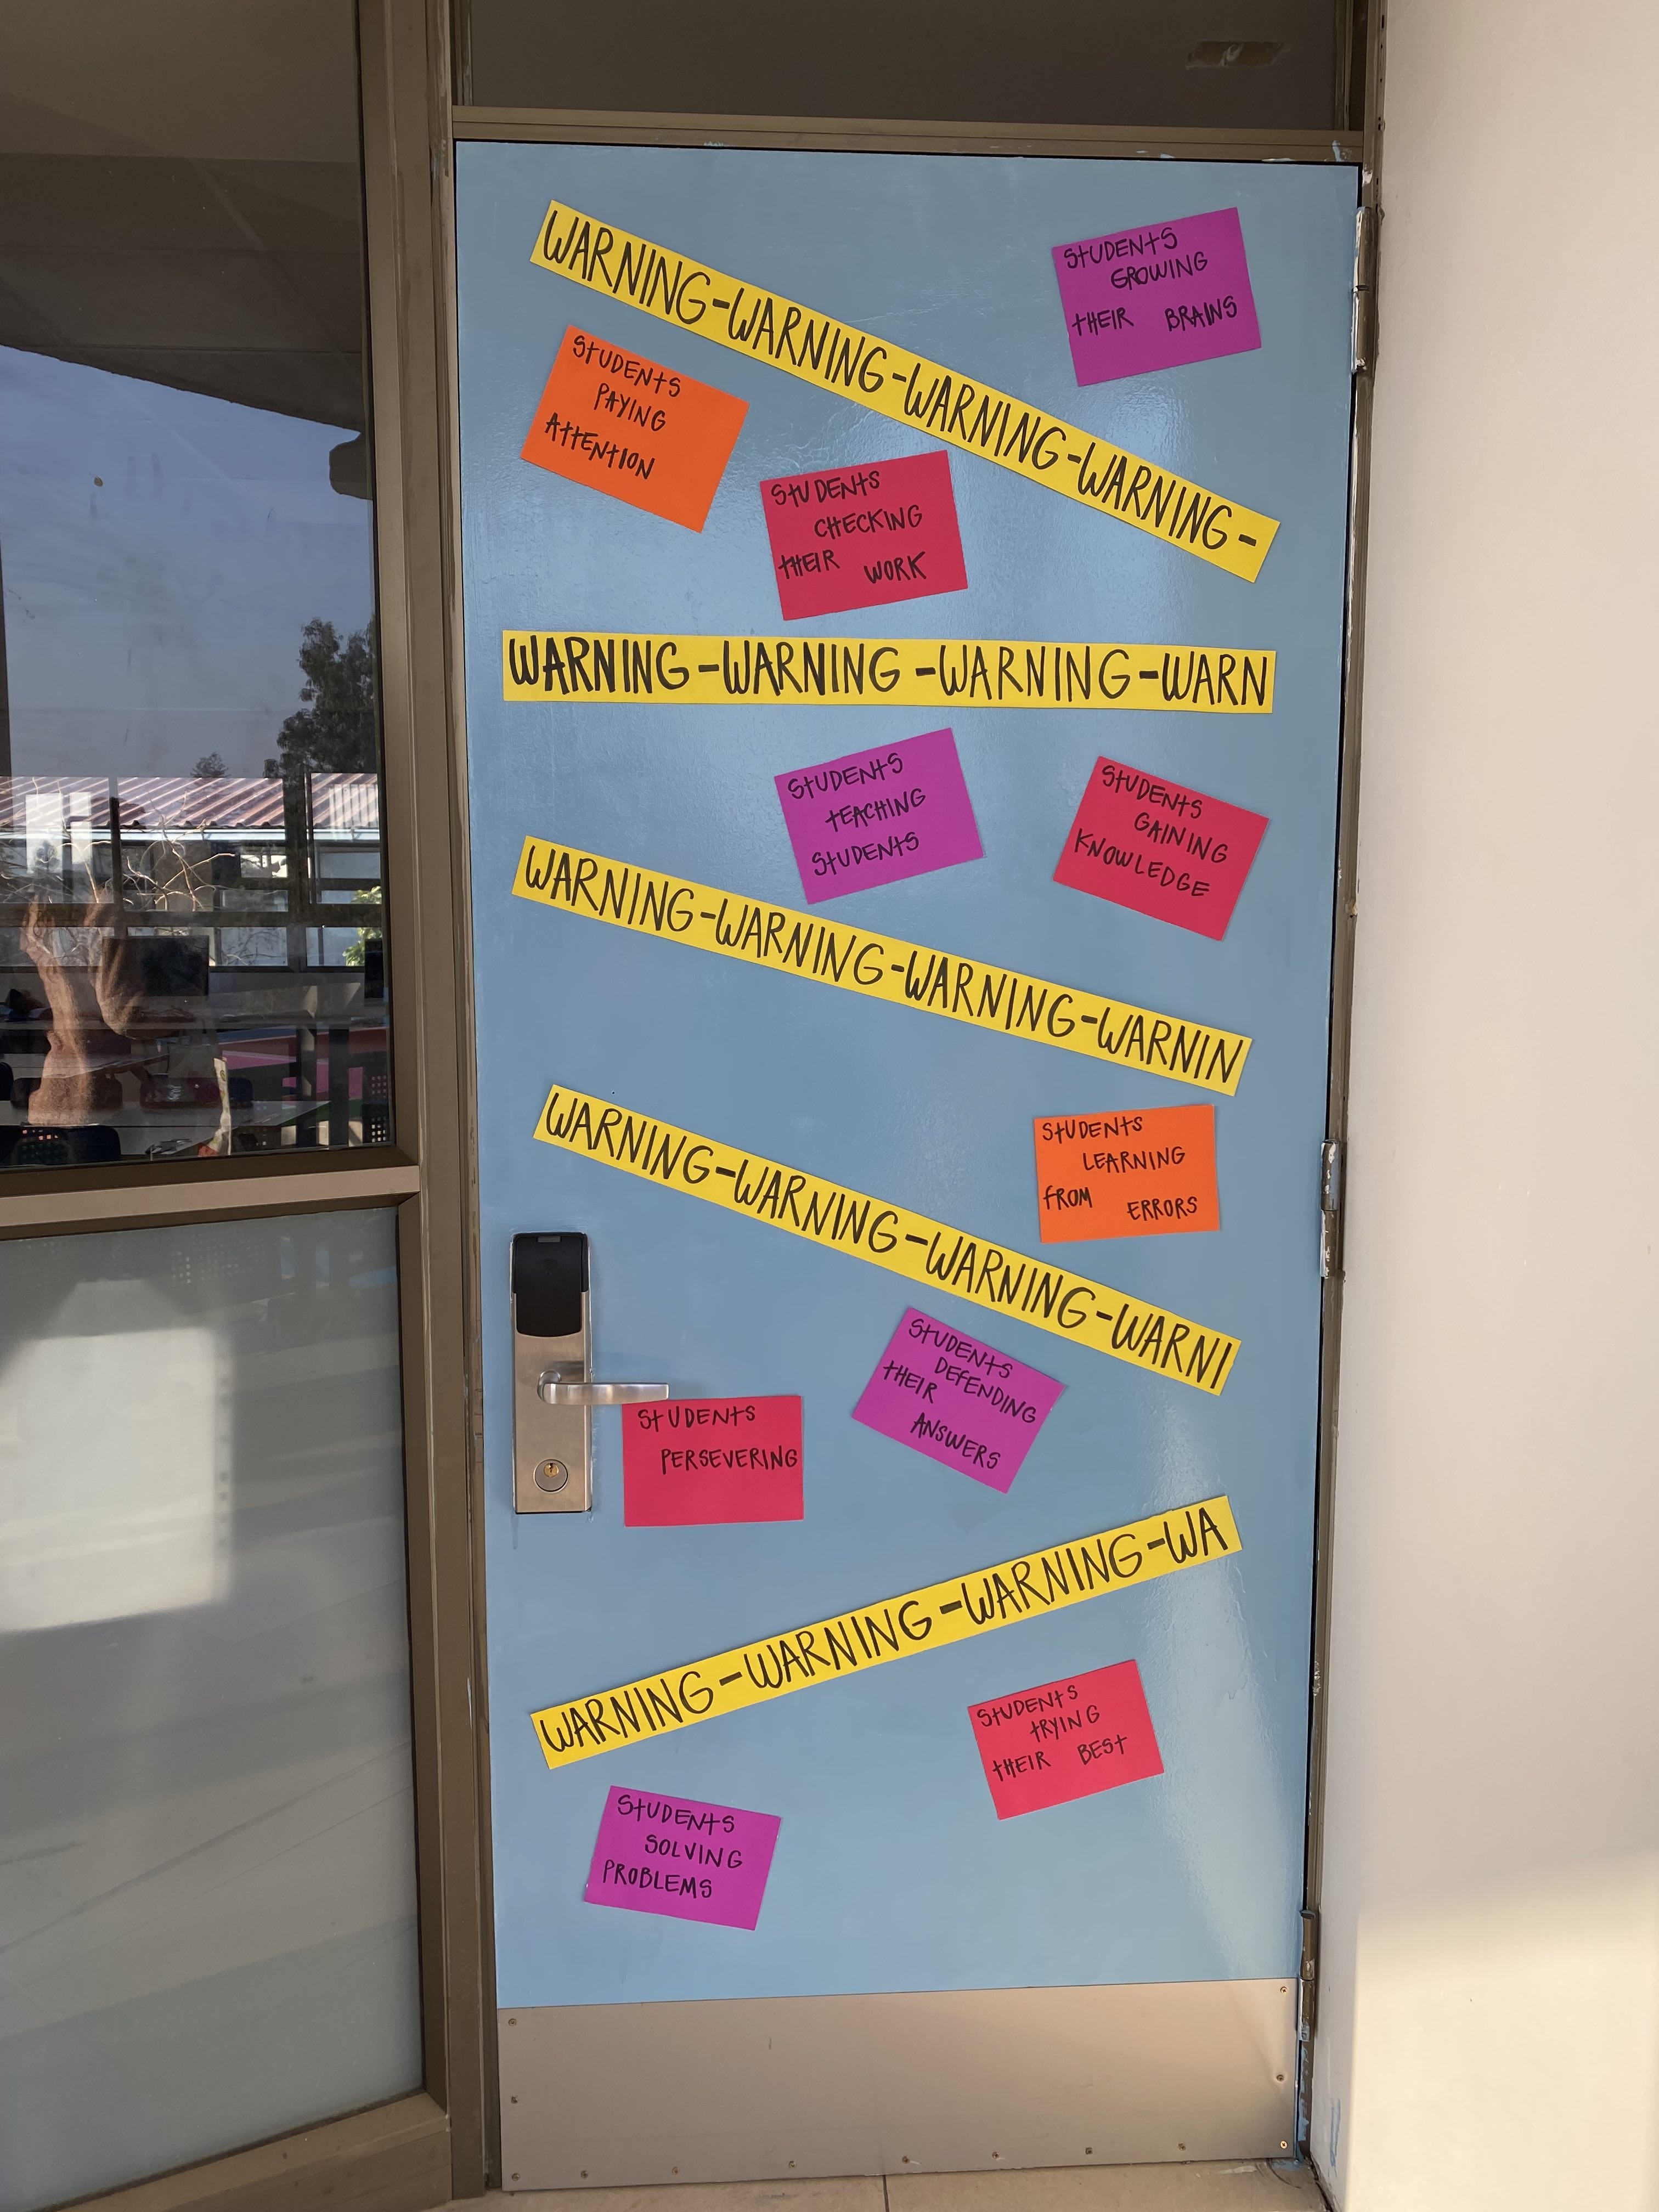 WARNING-WARNING-WARNING-WARNING-
STUDENTS
GROWING
THEIR BRAINS
STUDENTS
PAYING
ATTENTION
STUDENTS
CHECKING
THEIR WORK
WARNING-WARNING-WARNING-WARN
STUDENTS
TEACHING
STUDENTS
STUDENTS
GAINING
KNOWLEDGE
WARNING-WARNING-WARNING-WARNIN
WARNING-WARNING-WARNING-WARNI
STUDENTS
LEARNING
FROM ERRORS
STUDENTS
DEFENDING
THEIR
ANSWERS
STUDENTS
PERSEVERING
WARNING-WARNING-WARNING-WA
STUDENTS
TRYING
THEIR BEST
STUDENTS
SOLVING
PROBLEMS